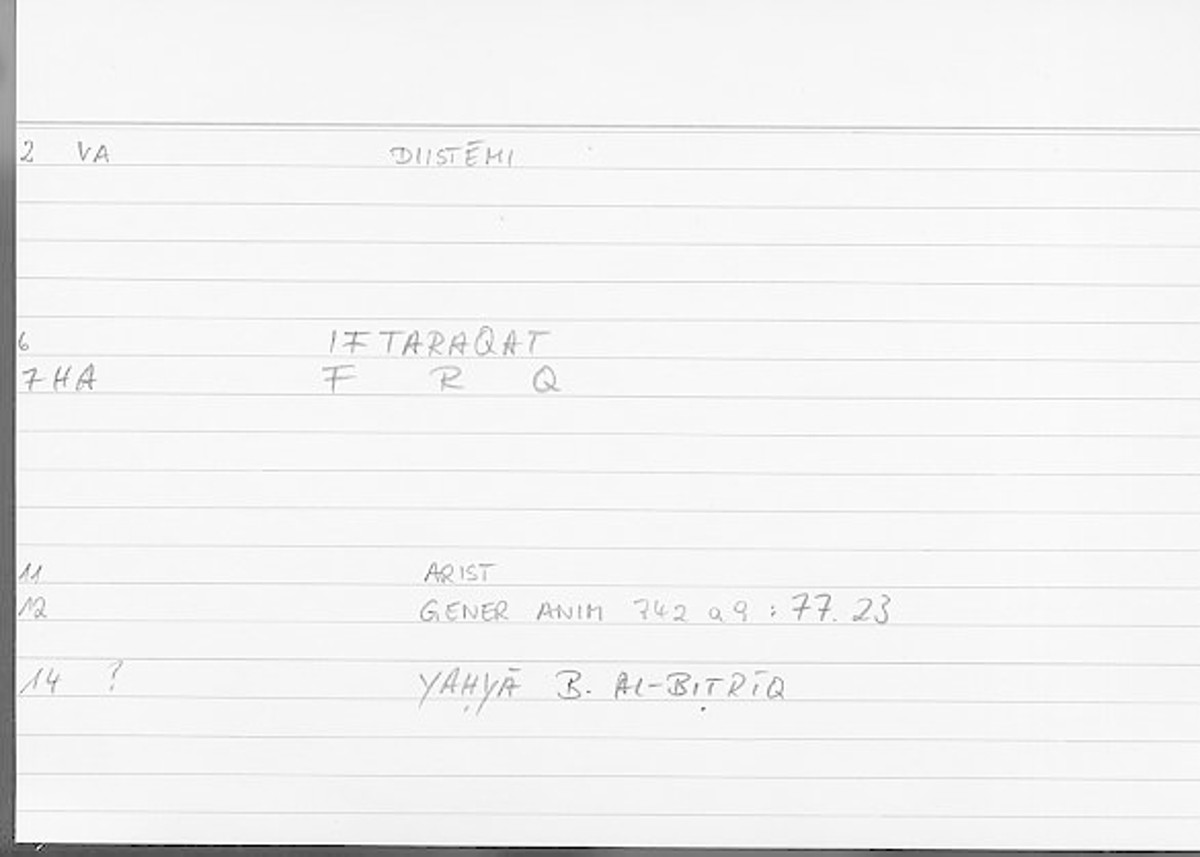 2 VA DIISTĒMI
6 IFTARAQAT
7 HA F R Q
11 ARIST
12 GENER ANIM 742 a 9 : 77. 23
14 ? YAḤYĀ B. AL-BIṬRĪQ